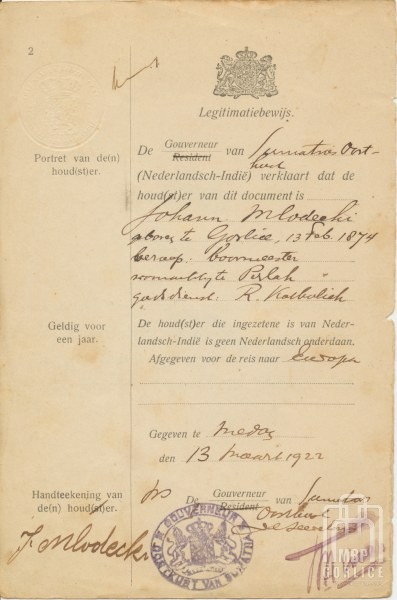 2
Legitimatiebewijs.
Portret van de(n)
houd(st)er.
De Gouverneur Resident van Sumatra's Oost-
kust
(Nederlandsch-Indië) verklaart dat de
houd(st)er van dit document is
Johann Mlodecki
geboren te Gorlice, 13 Feb. 1874
beroep: boormeester
voornaamlyk te Perlak
godsdienst: R. Katholiek
Geldig voor
een jaar.
De houd(st)er die ingezetene is van Neder-
landsch-Indië is geen Nederlandsch onderdaan.
Afgegeven voor de reis naar Europa
Gegeven te Medan
den 13 maart 1922
Handteekening van
de(n) houd(st)er.
De Gouverneur Resident van Sumatra's
Oostkust
de Secretaris
J. Mlodecki
GOUVERNEUR
OOSTKUST VAN SUMATRA
MBP
GORLICE